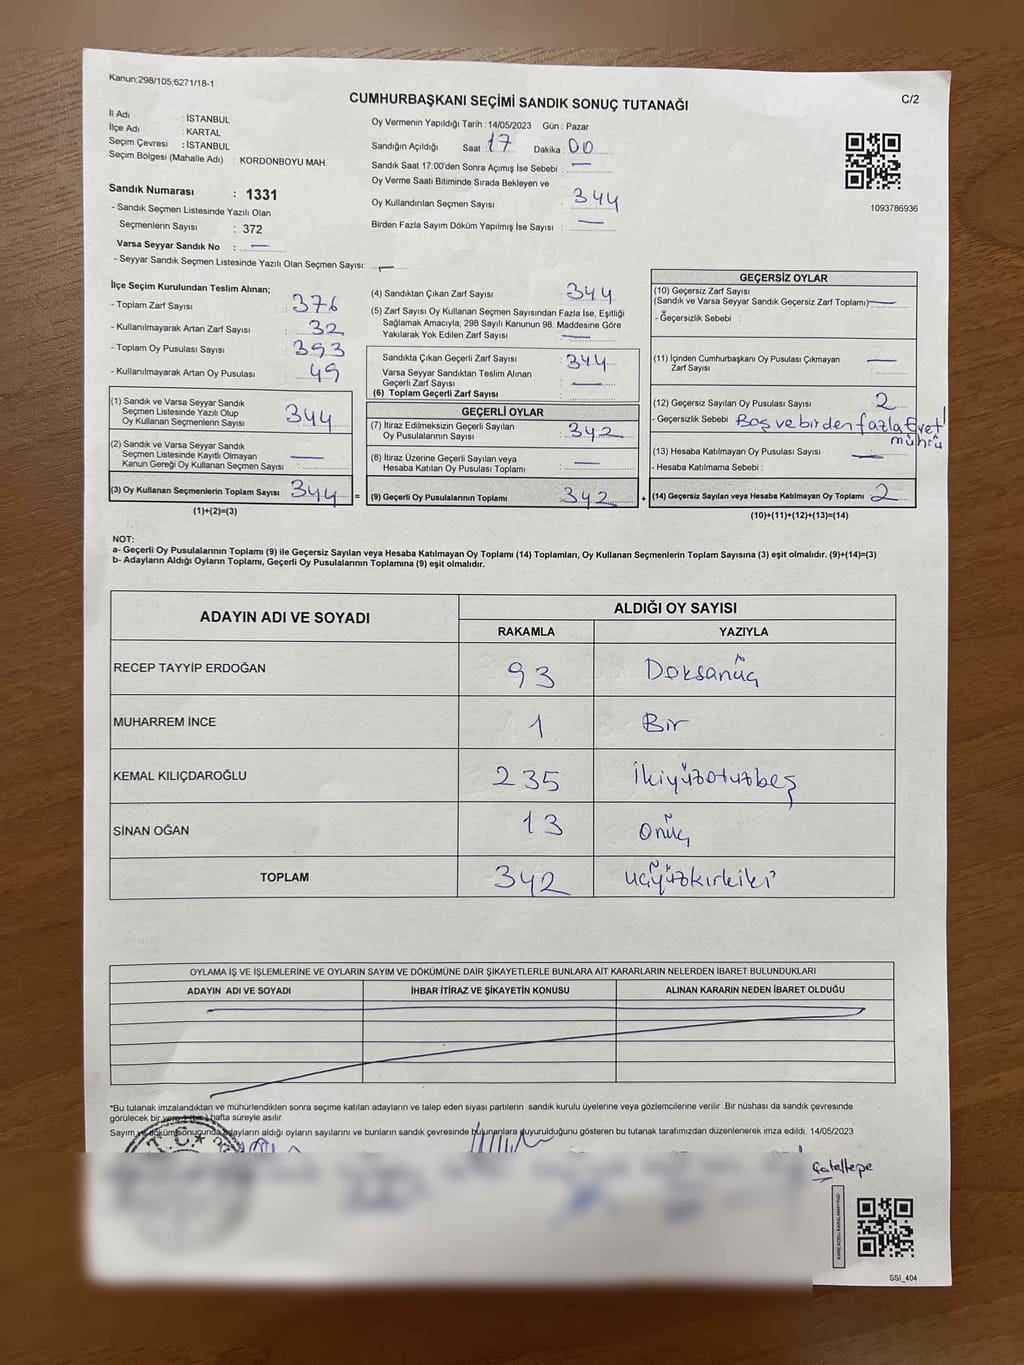 Kanun:298/105;6271/18-1
CUMHURBAŞKANI SEÇİMİ SANDIK SONUÇ TUTANAĞI
C/2
İl Adı : İSTANBUL
İlçe Adı : KARTAL
Seçim Çevresi : İSTANBUL
Seçim Bölgesi (Mahalle Adı) : KORDONBOYU MAH.
Sandık Numarası : 1331
- Sandık Seçmen Listesinde Yazılı Olan
Seçmenlerin Sayısı : 372
Varsa Seyyar Sandık No : —
- Seyyar Sandık Seçmen Listesinde Yazılı Olan Seçmen Sayısı: —
Oy Vermenin Yapıldığı Tarih : 14/05/2023 Gün : Pazar
Sandığın Açıldığı Saat : 17 Dakika : 00
Sandık Saat 17:00'den Sonra Açımış İse Sebebi : —
Oy Verme Saati Bitiminde Sırada Bekleyen ve
Oy Kullandırılan Seçmen Sayısı : 344
Birden Fazla Sayım Döküm Yapılmış İse Sayısı : —
1093786936
İlçe Seçim Kurulundan Teslim Alınan;
- Toplam Zarf Sayısı : 376
- Kullanılmayarak Artan Zarf Sayısı : 32
- Toplam Oy Pusulası Sayısı : 393
- Kullanılmayarak Artan Oy Pusulası : 49
(1) Sandık ve Varsa Seyyar Sandık
Seçmen Listesinde Yazılı Olup
Oy Kullanan Seçmenlerin Sayısı : 344
(2) Sandık ve Varsa Seyyar Sandık
Seçmen Listesinde Kayıtlı Olmayan
Kanun Gereği Oy Kullanan Seçmen Sayısı : —
(3) Oy Kullanan Seçmenlerin Toplam Sayısı : 344 =
(1)+(2)=(3)
(4) Sandıktan Çıkan Zarf Sayısı : 344
(5) Zarf Sayısı Oy Kullanan Seçmen Sayısından Fazla İse, Eşitliği
Sağlamak Amacıyla, 298 Sayılı Kanunun 98. Maddesine Göre
Yakılarak Yok Edilen Zarf Sayısı : —
Sandıkta Çıkan Geçerli Zarf Sayısı : 344
Varsa Seyyar Sandıktan Teslim Alınan
Geçerli Zarf Sayısı : —
(6) Toplam Geçerli Zarf Sayısı
GEÇERLİ OYLAR
(7) İtiraz Edilmeksizin Geçerli Sayılan
Oy Pusulalarının Sayısı : 342
(8) İtiraz Üzerine Geçerli Sayılan veya
Hesaba Katılan Oy Pusulası Toplamı : —
(9) Geçerli Oy Pusulalarının Toplamı : 342 +
GEÇERSİZ OYLAR
(10) Geçersiz Zarf Sayısı
(Sandık ve Varsa Seyyar Sandık Geçersiz Zarf Toplamı) —
- Geçersizlik Sebebi :
(11) İçinden Cumhurbaşkanı Oy Pusulası Çıkmayan
Zarf Sayısı : —
(12) Geçersiz Sayılan Oy Pusulası Sayısı : 2
- Geçersizlik Sebebi : Boş ve birden fazla Evet
mührü
(13) Hesaba Katılmayan Oy Pusulası Sayısı : —
- Hesaba Katılmama Sebebi :
(14) Geçersiz Sayılan veya Hesaba Katılmayan Oy Toplamı : 2
(10)+(11)+(12)+(13)=(14)
NOT:
a- Geçerli Oy Pusulalarının Toplamı (9) ile Geçersiz Sayılan veya Hesaba Katılmayan Oy Toplamı (14) Toplamları, Oy Kullanan Seçmenlerin Toplam Sayısına (3) eşit olmalıdır. (9)+(14)=(3)
b- Adayların Aldığı Oyların Toplamı, Geçerli Oy Pusulalarının Toplamına (9) eşit olmalıdır.
ADAYIN ADI VE SOYADI ALDIĞI OY SAYISI
RAKAMLA YAZIYLA
RECEP TAYYİP ERDOĞAN 93 Doksanüç
MUHARREM İNCE 1 Bir
KEMAL KILIÇDAROĞLU 235 İkiyüzotuzbeş
SİNAN OĞAN 13 onüç
TOPLAM 342 üçyüzkırkiki
OYLAMA İŞ VE İŞLEMLERİNE VE OYLARIN SAYIM VE DÖKÜMÜNE DAİR ŞİKAYETLERLE BUNLARA AİT KARARLARIN NELERDEN İBARET BULUNDUKLARI
ADAYIN ADI VE SOYADI İHBAR İTİRAZ VE ŞİKAYETİN KONUSU ALINAN KARARIN NEDEN İBARET OLDUĞU
*Bu tutanak imzalandıktan ve mühürlendikten sonra seçime katılan adayların ve talep eden siyasi partilerin sandık kurulu üyelerine veya gözlemcilerine verilir. Bir nüshası da sandık çevresinde
görülecek bir yere 1 (bir) hafta süreyle asılır.
Sayım ve döküm sonucunda adayların aldığı oyların sayılarını ve bunların sandık çevresinde bulunanlara duyurulduğunu gösteren bu tutanak tarafımızdan düzenlenerek imza edildi. 14/05/2023
T.C.*
Çataltepe
SSİ_404